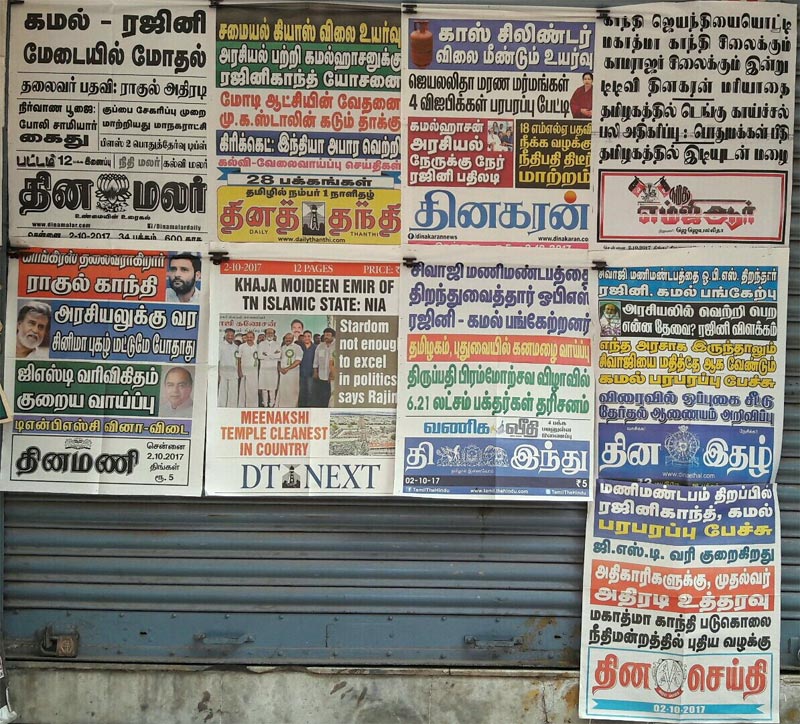 கமல் - ரஜினி
மேடையில் மோதல்
தலைவர் பதவி: ராகுல் அதிரடி
நிர்வாண பூஜை:
போலி சாமியார்
கைது
குப்பை சேகரிப்பு முறை
மாற்றியது மாநகராட்சி
பிளஸ் 2 பொதுத்தேர்வு டிப்ஸ்
பட்டம் 12 பக்க இணைப்பு
நிதி மலர்
கல்வி மலர்
தின மலர்
உண்மையின் உரைகல்
www.dinamalar.com
சென்னை 2-10-2017 34 பக்கம்
சமையல் கியாஸ் விலை உயர்வு
அரசியல் பற்றி கமல்ஹாசனுக்கு
ரஜினிகாந்த் யோசனை
மோடி ஆட்சியின் வேதனை
மு.க.ஸ்டாலின் கடும் தாக்கு
கிரிக்கெட்: இந்தியா அபார வெற்றி
கல்வி-வேலைவாய்ப்பு செய்திகள்
28 பக்கங்கள்
தமிழில் நம்பர் 1 நாளிதழ்
தினத் தந்தி
DAILY THANTHI
www.dailythanthi.com
காஸ் சிலிண்டர்
விலை மீண்டும் உயர்வு
ஜெயலலிதா மரண மர்மங்கள்
4 விஐபிக்கள் பரபரப்பு பேட்டி
கமல்ஹாசன்
அரசியல்
நேருக்கு நேர்
ரஜினி பதிலடி
18 எம்எல்ஏ பதவி
நீக்க வழக்கு
நீதிபதி திடீர்
மாற்றம்
தினகரன்
dinakarannews
www.dinakaran.com
காந்தி ஜெயந்தியையொட்டி
மகாத்மா காந்தி சிலைக்கும்
காமராஜர் சிலைக்கும் இன்று
டிடிவி தினகரன் மரியாதை
தமிழகத்தில் டெங்கு காய்ச்சல்
பலி அதிகரிப்பு : பொதுமக்கள் பீதி
தமிழகத்தில் இடியுடன் மழை
எம்ஜிஆர்
காங்கிரஸ் தலைவராகிறார்
ராகுல் காந்தி
அரசியலுக்கு வர
சினிமா புகழ் மட்டுமே போதாது
ஜிஎஸ்டி வரிவிகிதம்
குறைய வாய்ப்பு
டிஎன்பிஎஸ்சி வினா-விடை
தினமணி
சென்னை
2.10.2017
திங்கள்
ரூ. 5
2-10-2017 12 PAGES PRICE:
KHAJA MOIDEEN EMIR OF
TN ISLAMIC STATE: NIA
Stardom
not enough
to excel
in politics
says Rajini
MEENAKSHI
TEMPLE CLEANEST
IN COUNTRY
DT NEXT
சிவாஜி மணிமண்டபத்தை
திறந்துவைத்தார் ஓபிஎஸ்
ரஜினி - கமல் பங்கேற்றனர்
தமிழகம், புதுவையில் கனமழை வாய்ப்பு
திருப்பதி பிரம்மோற்சவ விழாவில்
6.21 லட்சம் பக்தர்கள் தரிசனம்
வணிக வீதி
4 பக்க
இணைப்பு
தி இந்து
02-10-17 ₹5
TamilTheHindu www.tamil.thehindu.com TamilTheHindu
சிவாஜி மணிமண்டபத்தை ஓ.பி.எஸ். திறந்தார்
ரஜினி, கமல் பங்கேற்பு
அரசியலில் வெற்றி பெற
என்ன தேவை? ரஜினி விளக்கம்
எந்த அரசாக இருந்தாலும்
சிவாஜியை மதித்தே ஆக வேண்டும்
கமல் பரபரப்பு பேச்சு
விரைவில் ஒப்புகை சீட்டு
தேர்தல் ஆணையம் அறிவிப்பு
தின இதழ்
www.Dinaethal.com
மணிமண்டபம் திறப்பில்
ரஜினிகாந்த், கமல்
பரபரப்பு பேச்சு
ஜி.எஸ்.டி. வரி குறைகிறது
அதிகாரிகளுக்கு, முதல்வர்
அதிரடி உத்தரவு
மகாத்மா காந்தி படுகொலை
நீதிமன்றத்தில் புதிய வழக்கு
தின செய்தி
02-10-2017